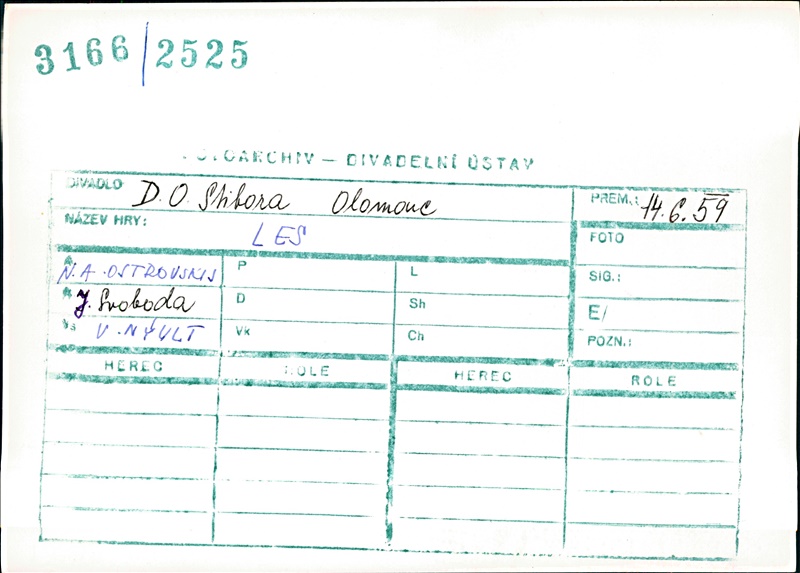 3166/2525
FOTOARCHIV – DIVADELNÍ ÚSTAV
DIVADLO D. O. Stibora Olomouc PREM.: 14.6.59
NÁZEV HRY: LES FOTO
A N.A. OSTROVSKIJ P L SIG.:
R J. Svoboda D Sh E/
Vs V. NÝVLT Vk Ch POZN.:
HEREC ROLE HEREC ROLE